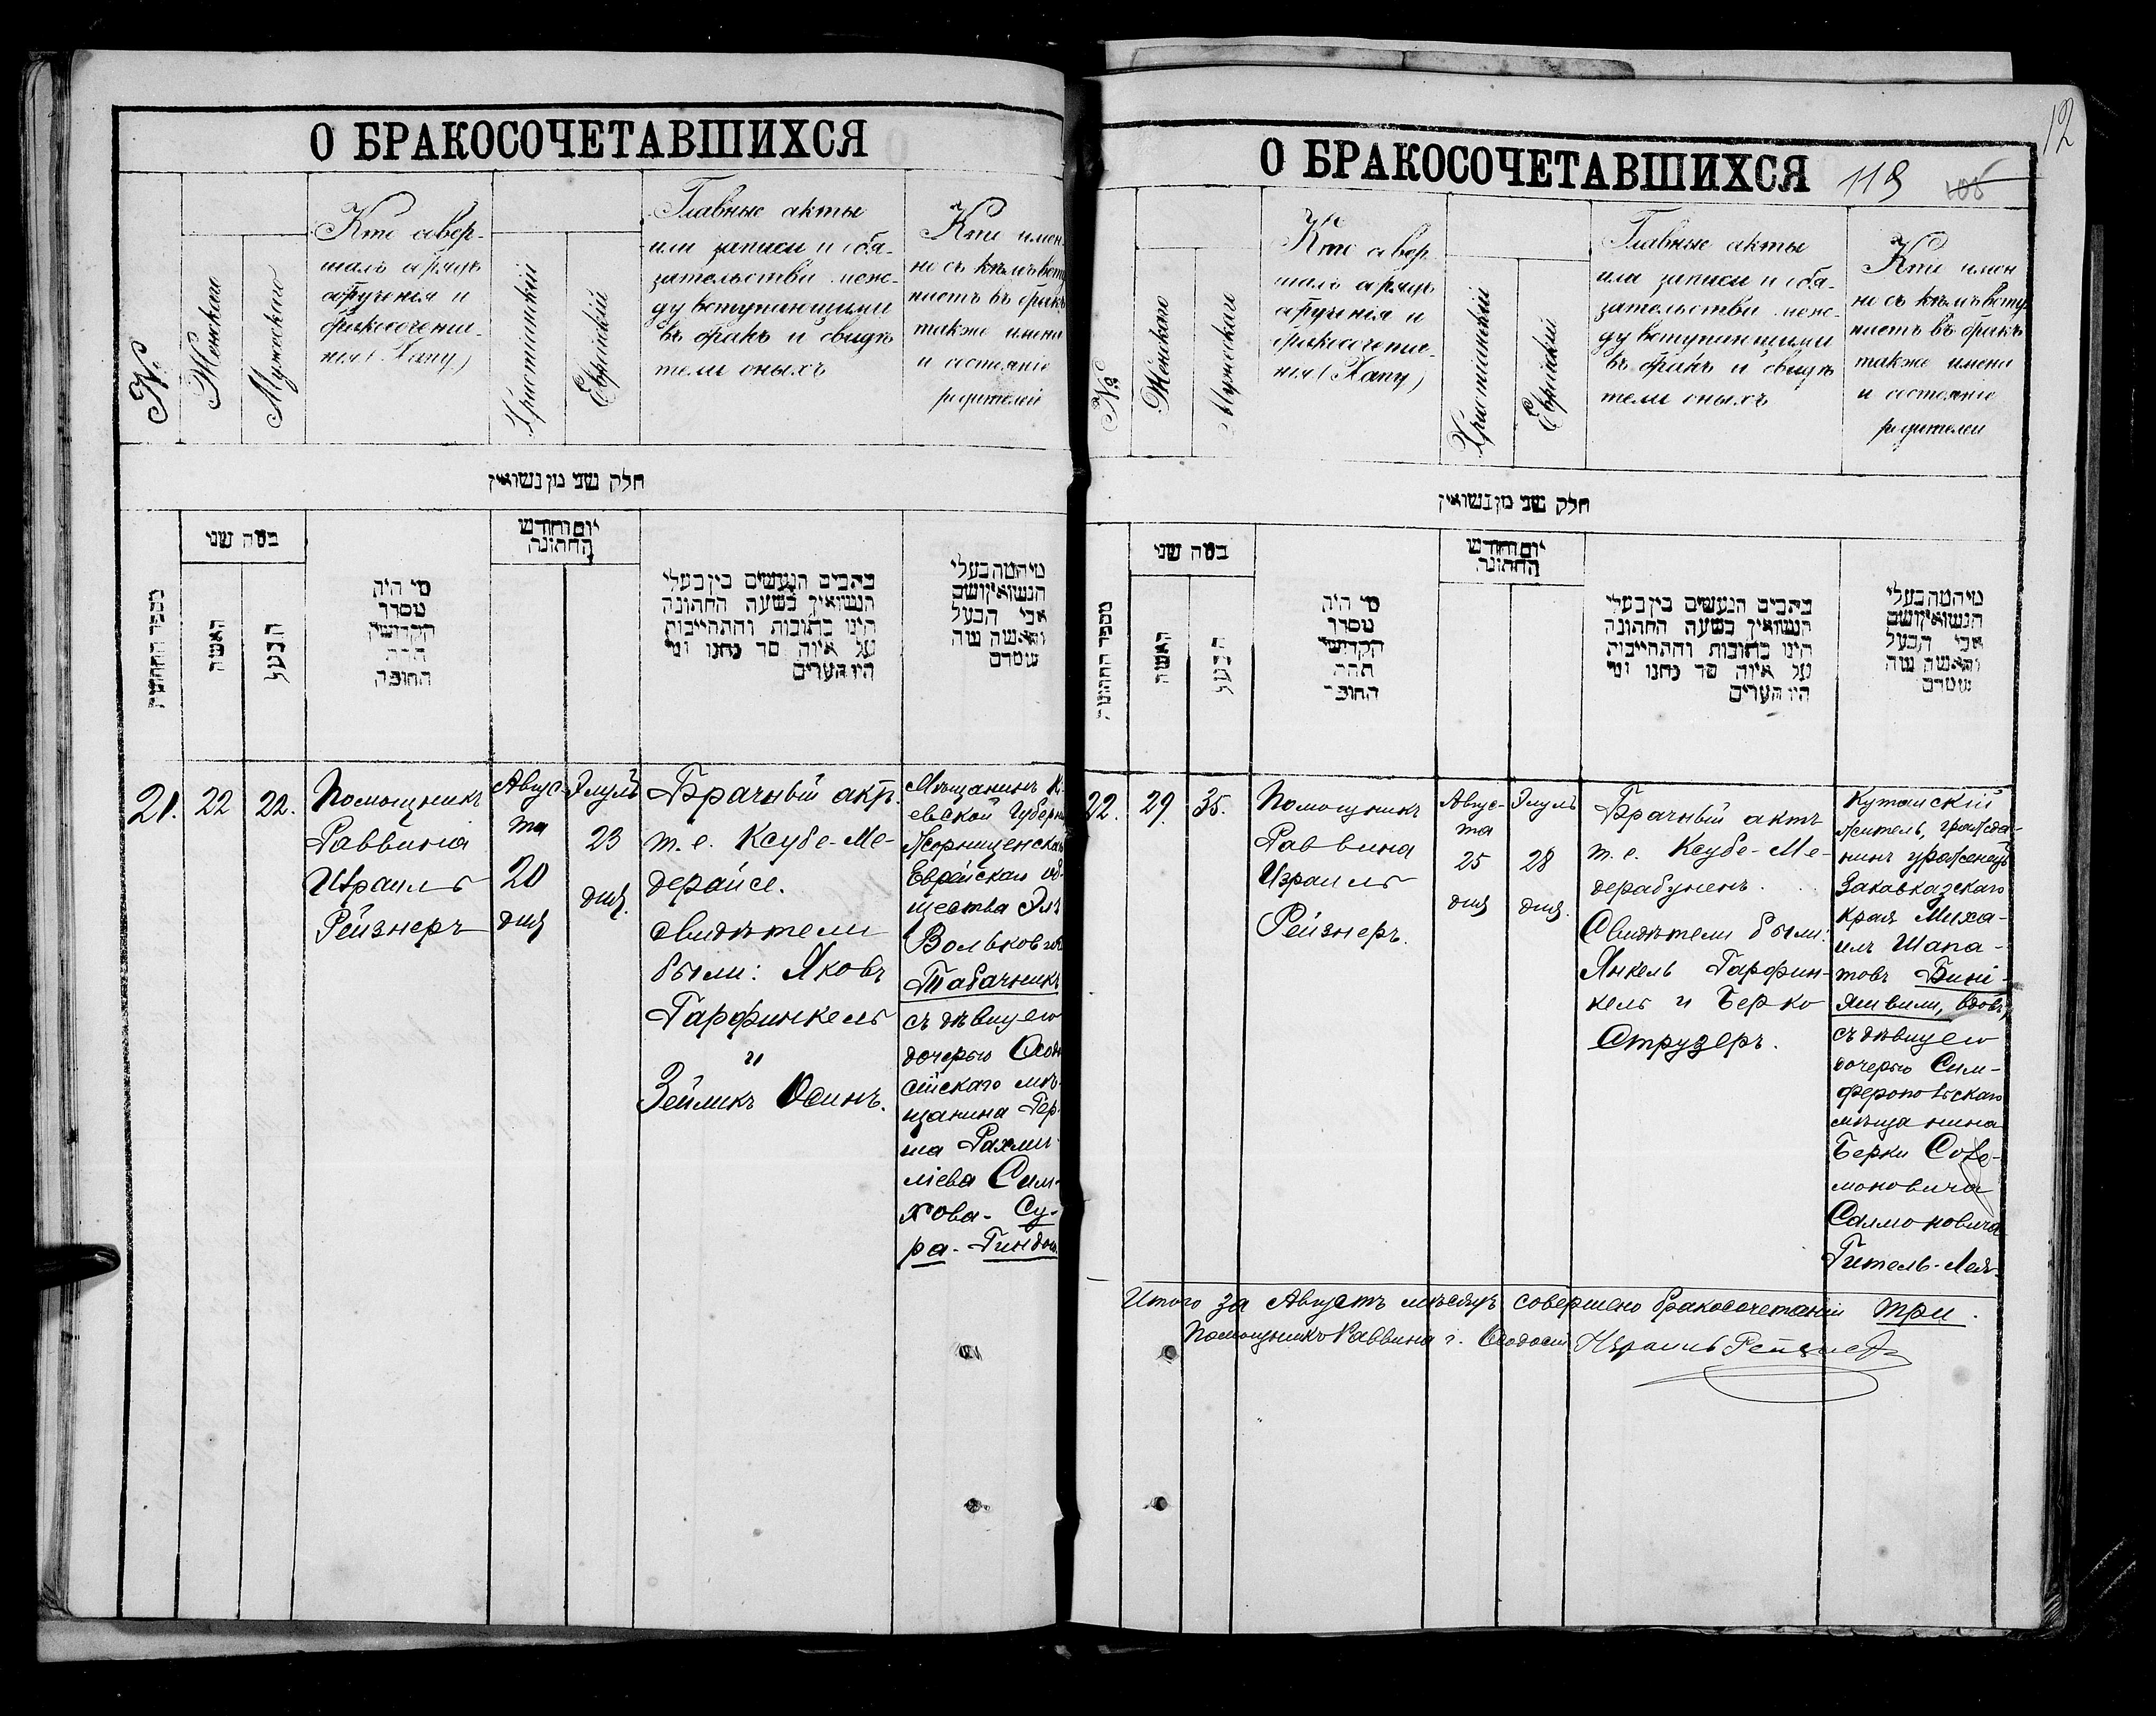 О БРАКОСОЧЕТАВШИХСЯ
№
Женскаго
Мужескаго
Кто совер-
шалъ обрядъ
обрученія и
бракосочета-
нія (Хупу)
Христіанскій
Еврейскій
Главные акты
или записи и обя-
зательства меж-
ду вступающими
въ бракъ и свидѣ
тели оныхъ
Кто имен
но съ кѣмъ всту
паетъ въ бракъ
также имена
и состояніе
родителей
חלק שני מן נשואין
מספר החתונות
כמה שני
האשה
הבעל
מי היה
מסדר
הקדושין
תחת
החופה
יום וחודש
החתונה
כתבים הנעשים בין בעלי
הנשואין בשעה החתונה
היינו כתובות והתחייבות
על איזה סך נתנו ומי
היו העדים
מי המה בעלי
הנשואין ושם
אבי הבעל
והאשה ומה
עמדם
21.
22
22.
Помощникъ
Раввина
Израиль
Рейзнеръ
Авгус-
та
20
дня
Элуль
23
дня.
Брачный акт.
т. е. Ксубе-Ме-
дерайсе.
Свидѣтели
были: Яковъ
Гарфинкель
и
Зейликъ Осинъ.
Мѣщанинъ К
евской Губерн
Еврейскаго об-
щества
Вольковъ
Табачникъ
съ дѣвицею
дочерью Ѳеодо
сійскаго мѣ-
щанина Гер-
ша Рахми-
ліева Сим-
хова - Су-
ра - Гиндою
12
О БРАКОСОЧЕТАВШИХСЯ 119
№
Женскаго
Мужескаго
Кто совер
шалъ обрядъ
обрученія и
бракосочета-
нія (Хупу)
Христіанскій
Еврейскій
Главные акты
или записи и обя-
зательства меж-
ду вступающими
въ бракъ и свидѣ
тели оныхъ
Кто имен
но съ кѣмъ всту
паетъ въ бракъ
также имена
и состояніе
родителей
חלק שני מן נשואין
מספר החתונות
כמה שני
האשה
הבעל
מי היה
מסדר
הקדושין
תחת
החופה
יום וחודש
החתונה
כתבים הנעשים בין בעלי
הנשואין בשעה החתונה
היינו כתובות והתחייבות
על איזה סך נתנו ומי
היו העדים
מי המה בעלי
הנשואין ושם
אבי הבעל
והאשה ומה
עמדם
22.
29.
35.
Помощникъ
Раввина
Израиль
Рейзнеръ.
Авгус-
та
25
дня
Элуль
28
дня.
Брачный актъ
т. е. Ксубе-Ме-
дерабунемъ.
Свидѣтели были:
Янкель Гарфин-
кель и Берко
Струзеръ.
Кутаискій
житель, гражда-
нинъ уроженецъ
Закавказскаго
края Миха-
илъ Шапа-
товъ Бині-
яшвили, вдов.,
съ дѣвицею
дочерью Сим-
феропольскаго
мѣщанина
Берки Соле-
моновича
Салмоновича
Гитель-Лея.
Итого за Августъ мѣсяцъ совершено бракосочетаній три.
Помощникъ Раввина г. Ѳеодосіи Израиль Рейзнеръ